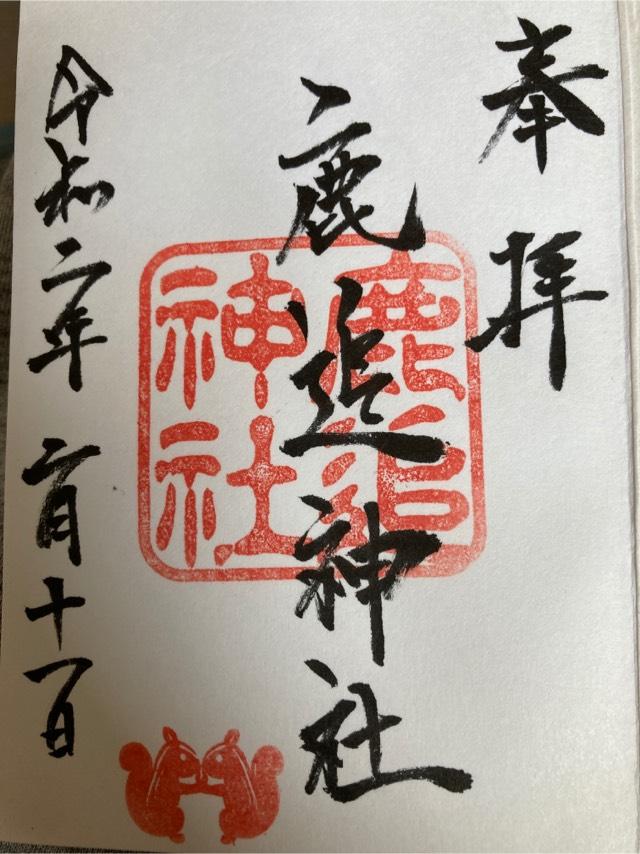 奉拝
鹿追神社
鹿追神社
令和二年二月十一日